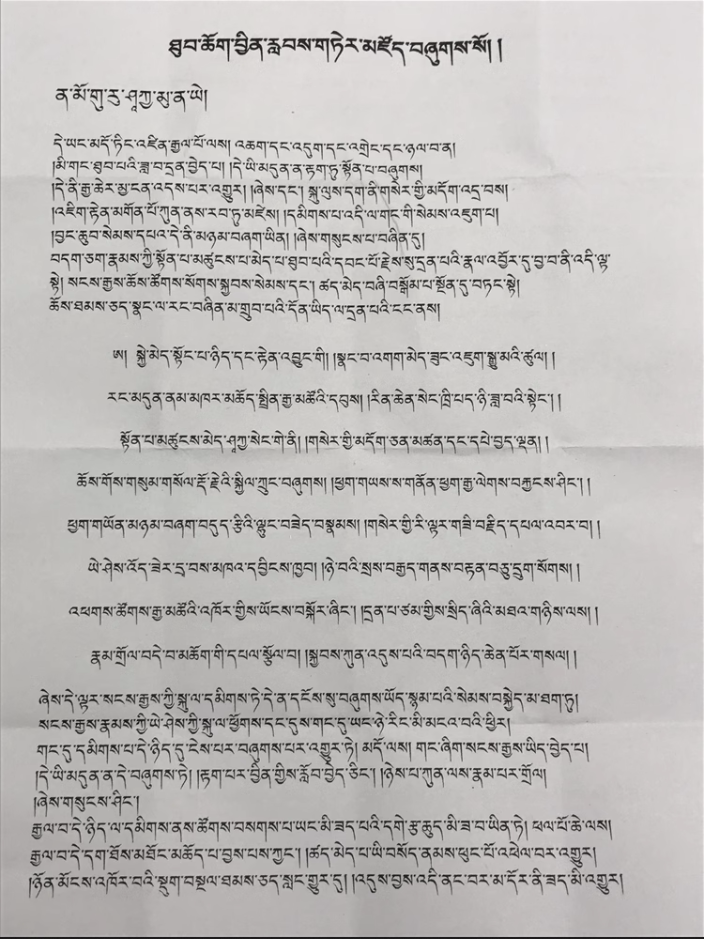 ཐུབ་ཆོག་བྱིན་རླབས་གཏེར་མཛོད་བཞུགས་སོ། །
ན་མོ་གུ་རུ་ཤཱཀྱ་མུ་ན་ཡེ།
དེ་ཡང་མདོ་ཏིང་འཛིན་རྒྱལ་པོ་ལས། འཆག་དང་འདུག་དང་འགྲེང་དང་ཉལ་བ་ན།
།མི་གང་ཐུབ་པའི་ཟླ་བ་དྲན་བྱེད་པ། །དེ་ཡི་མདུན་ན་རྟག་ཏུ་སྟོན་པ་བཞུགས།
།དེ་ནི་རྒྱ་ཆེར་མྱ་ངན་འདས་པར་འགྱུར། །ཞེས་དང་། སྐུ་ལུས་དག་ནི་གསེར་གྱི་མདོག་འདྲ་བས།
།འཇིག་རྟེན་མགོན་པོ་ཀུན་ནས་རབ་ཏུ་མཛེས། །དམིགས་པ་འདི་ལ་གང་གི་སེམས་འཇུག་པ།
།བྱང་ཆུབ་སེམས་དཔའ་དེ་ནི་མཉམ་བཞག་ཡིན། །ཞེས་གསུངས་པ་བཞིན་དུ།
བདག་ཅག་རྣམས་ཀྱི་སྟོན་པ་མཚུངས་པ་མེད་པ་ཐུབ་པའི་དབང་པོ་རྗེས་སུ་དྲན་པའི་རྣལ་འབྱོར་དུ་བྱ་བ་ནི་འདི་ལྟ་
སྟེ། སངས་རྒྱས་ཆོས་ཚོགས་སོགས་སྐྱབས་སེམས་དང་། ཚད་མེད་བཞི་བསྒོམ་པ་སྔོན་དུ་བཏང་སྟེ།
ཆོས་ཐམས་ཅད་སྣང་ལ་རང་བཞིན་མ་གྲུབ་པའི་དོན་ཡིད་ལ་དྲན་པའི་ངང་ནས།
ཨ། སྐྱེ་མེད་སྟོང་པ་ཉིད་དང་རྟེན་འབྱུང་གི། །སྣང་བ་འགག་མེད་ཟུང་འཇུག་སྒྱུ་མའི་ཚུལ། །
རང་མདུན་ནམ་མཁར་མཆོད་སྤྲིན་རྒྱ་མཚོའི་དབུས། །རིན་ཆེན་སེང་ཁྲི་པད་ཉི་ཟླ་བའི་སྟེང་། །
སྟོན་པ་མཚུངས་མེད་ཤཱཀྱ་སེང་གེ་ནི། །གསེར་གྱི་མདོག་ཅན་མཚན་དང་དཔེ་བྱད་ལྡན། །
ཆོས་གོས་གསུམ་གསོལ་རྡོ་རྗེའི་སྐྱིལ་ཀྲུང་བཞུགས། །ཕྱག་གཡས་ས་གནོན་ཕྱག་རྒྱ་ལེགས་བརྐྱངས་ཤིང་། །
ཕྱག་གཡོན་མཉམ་བཞག་བདུད་རྩིའི་ལྷུང་བཟེད་བསྣམས། །གསེར་གྱི་རི་ལྟར་གཟི་བརྗིད་དཔལ་འབར་བ། །
ཡེ་ཤེས་འོད་ཟེར་དྲ་བས་མཁའ་དབྱིངས་ཁྱབ། །ཉེ་བའི་སྲས་བརྒྱད་གནས་བརྟན་བཅུ་དྲུག་སོགས། །
འཕགས་ཚོགས་རྒྱ་མཚོའི་འཁོར་གྱིས་ཡོངས་བསྐོར་ཞིང་། །དྲན་པ་ཙམ་གྱིས་སྲིད་ཞིའི་མཐའ་གཉིས་ལས། །
རྣམ་གྲོལ་བདེ་བ་མཆོག་གི་དཔལ་སྩོལ་བ། །སྐྱབས་ཀུན་འདུས་པའི་བདག་ཉིད་ཆེན་པོར་གསལ། །
ཞེས་དེ་ལྟར་སངས་རྒྱས་ཀྱི་སྐུ་ལ་དམིགས་ཏེ་དེ་ན་དངོས་སུ་བཞུགས་ཡོད་སྙམ་པའི་སེམས་བསྐྱེད་མ་ཐག་ཏུ།
སངས་རྒྱས་རྣམས་ཀྱི་ཡེ་ཤེས་ཀྱི་སྐུ་ལ་ཕྱོགས་དང་དུས་གང་དུ་ཡང་ཉེ་རིང་མི་མངའ་བའི་ཕྱིར།
གང་དུ་དམིགས་པ་དེ་ཉིད་དུ་ངེས་པར་བཞུགས་པར་འགྱུར་ཏེ། མདོ་ལས། གང་ཞིག་སངས་རྒྱས་ཡིད་བྱེད་པ།
།དེ་ཡི་མདུན་ན་དེ་བཞུགས་ཏེ། །རྟག་པར་བྱིན་གྱིས་རློབ་བྱེད་ཅིང་། །ཉེས་པ་ཀུན་ལས་རྣམ་པར་གྲོལ།
།ཞེས་གསུངས་ཤིང་།
རྒྱལ་བ་དེ་ཉིད་ལ་དམིགས་ནས་ཚོགས་བསགས་པ་ཡང་མི་ཟད་པའི་དགེ་རྩ་ཆུད་མི་ཟ་བ་ཡིན་ཏེ། ཕལ་པོ་ཆེ་ལས།
རྒྱལ་བ་དེ་དག་ཐོས་མཐོང་མཆོད་པ་བྱས་པས་ཀྱང་། །ཚད་མེད་པ་ཡི་བསོད་ནམས་ཕུང་པོ་འཕེལ་བར་འགྱུར།
།ཉོན་མོངས་འཁོར་བའི་སྡུག་བསྔལ་ཐམས་ཅད་སླང་གྱུར་དུ། །འདུས་བྱས་འདི་ནང་བར་མ་དོར་ནི་ཟད་མི་འགྱུར།